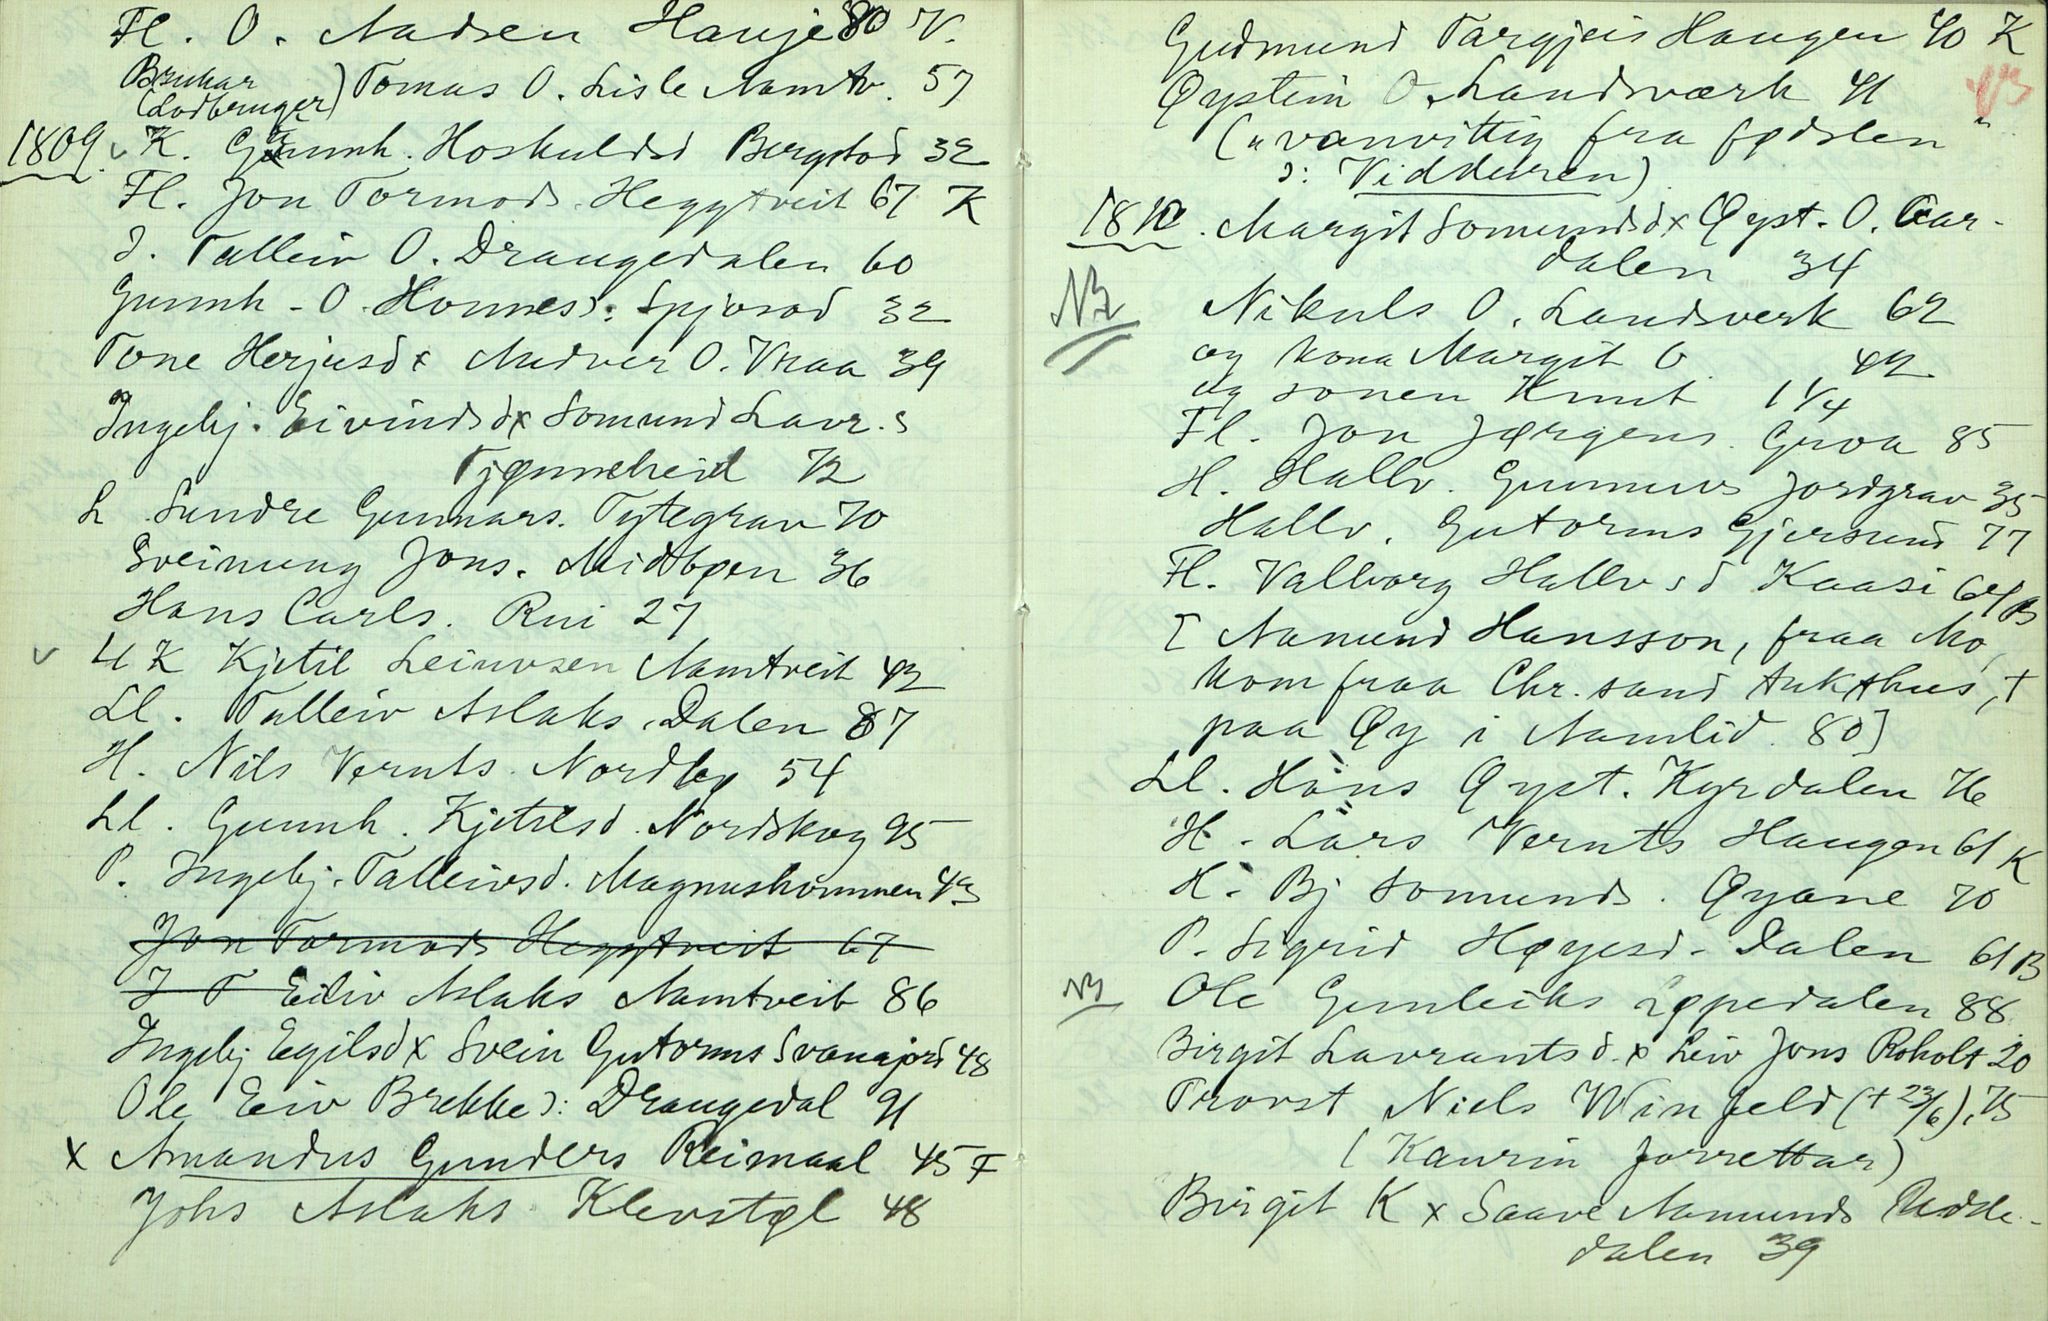 Fl. O. Aadsen Hauje 80 V.
Brukar
(Lodbruger) Tomas O. Lisle Aamtv. 57
1809. K. Gunnh. Hoskuldsd Bergstad 32
Fl. Jon Tormods. Heggtveit 67 K
J. Talleiv O. Draugedalen 60
Gunnh. O. Homnes ɔ: Spjosod 32
Tone Herjusd x Audver O. Vraa 39
Ingebj. Eivindsd x Somund Lavr.s
Tjønnheid 72
L. Sundre Gunnars. Tytegrav 70
Sveinung Jons. Midtbøen 36
Hans Carls. Rui 27
v LlK Kjetil Leivsen Aamtveit 42
Ll. Talleiv Aslaks. Dalen 87
H. Nils Vernts. Nordbø 54
Ll. Gunnh. Kjetilsd. Nordskog 95
P. Ingebj. Talleivsd. Magnushommen 43
Jon Tormods Heggtveit 67
J T Eiliv Aslaks Aamtveit 86
Ingebj Egilsd x Svein Gutorms Svanajord 48
Ole Eiv Brekke ɔ: Draugedal 91
x Amandus Gunders Reimaal 45 F
Johs Aslaks Klevstøl 48
Gudmund Targjeis Haugen 40 K
Øystein O. Landsværk 41
("vanvittig fra fødslen"
ɔ: Vidduren)
1810. Margit Somundsd x Øyst. O. Gar-
dalen 34
NB Nikuls O. Landsverk 62
og kona Margit O 42
og sonen Knut 1 1/4
Fl. Jon Jørgens. Grova 85
H. Hallv. Gunnuvs Jordgrav 35
Hallv. Gutorms Gjersund 77
Fl. Valborg Hallvsd Kaasi 64 B
[Aamund Hansson, fraa Mo,
kom fraa Chr.sand tukthus, +
paa Øy i Aamlid. 80]
Ll. Hans Øyst. Kyrdalen 76
H. Lars Vernts Haugen 61 K
H. Bj Somunds. Øyane 70
P. Sigrid Høyesd. Dalen 61 B
NB Ole Gunleiks Løpedalen 88
Birgit Lavrantsd. x Leiv Jons Roholt 20
Provst Niels Winfeld (+ 23/6). 75
(Kaurin forrettar)
Birgit K x Saave Aamunds Udde-
dalen 39